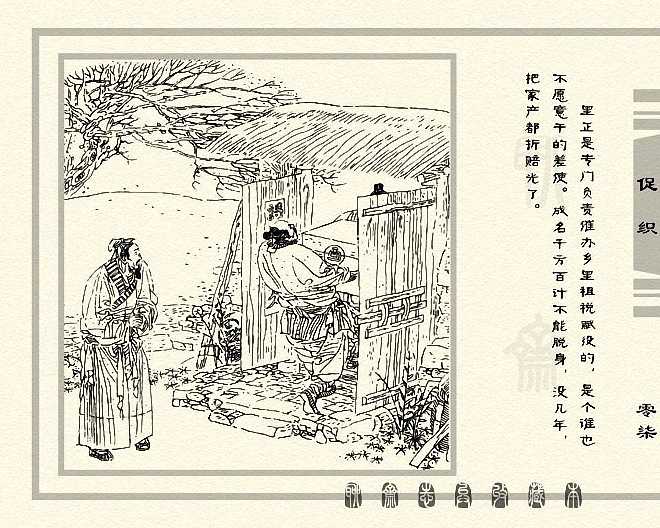 里正是专门负责催办乡里租税赋役的，是个谁也
不愿意干的差使。成名千方百计不能脱身，没几年，
把家产都折赔光了。
促织
零柒